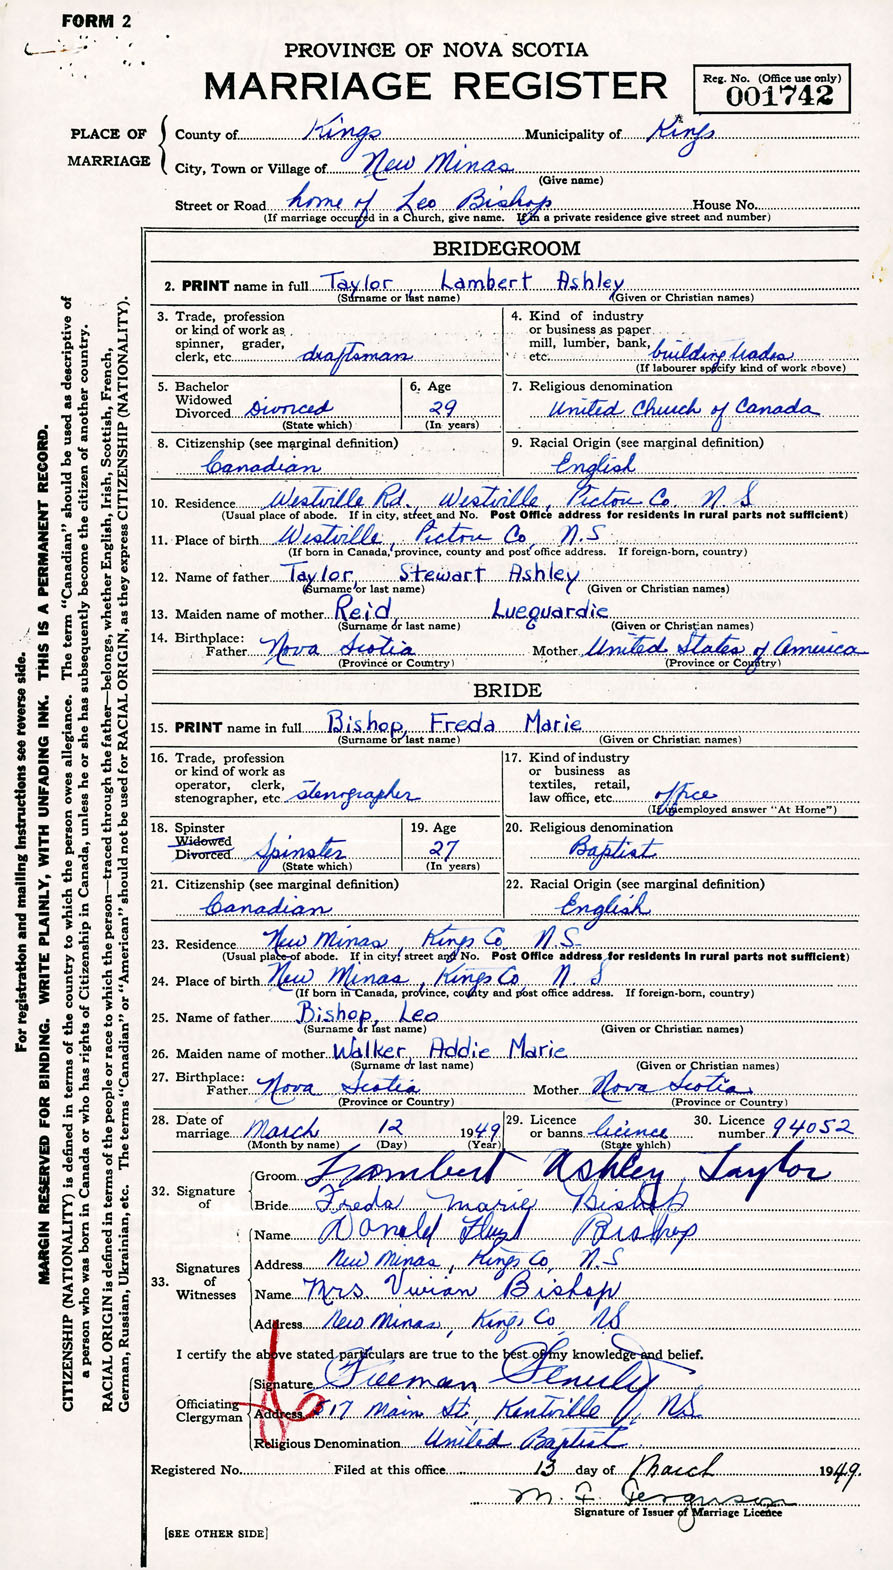 FORM 2
PROVINCE OF NOVA SCOTIA
MARRIAGE REGISTER
Reg. No. (Office use only)
001742
PLACE OF MARRIAGE
County of Kings Municipality of Kings
City, Town or Village of New Minas
(Give name)
Street or Road home of Leo Bishop House No.
(If marriage occurred in a Church, give name. If in a private residence give street and number)
BRIDEGROOM
2. PRINT name in full Taylor, Lambert Ashley
(Surname or last name) (Given or Christian names)
3. Trade, profession
or kind of work as
spinner, grader,
clerk, etc. draftsman
4. Kind of industry
or business as paper
mill, lumber, bank,
etc. building trades
(If labourer specify kind of work above)
5. Bachelor
Widowed
Divorced Divorced
(State which)
6. Age
29
(In years)
7. Religious denomination
United Church of Canada
8. Citizenship (see marginal definition)
Canadian
9. Racial Origin (see marginal definition)
English
10. Residence Westville Rd., Westville, Pictou Co, N.S
(Usual place of abode. If in city, street and No. Post Office address for residents in rural parts not sufficient)
11. Place of birth Westville, Pictou Co, N.S
(If born in Canada, province, county and post office address. If foreign-born, country)
12. Name of father Taylor, Stewart Ashley
(Surname or last name) (Given or Christian names)
13. Maiden name of mother Reid Lueguardie
(Surname or last name) (Given or Christian names)
14. Birthplace:
Father Nova Scotia Mother United States of America
(Province or Country) (Province or Country)
BRIDE
15. PRINT name in full Bishop, Freda Marie
(Surname or last name) (Given or Christian names)
16. Trade, profession
or kind of work as
operator, clerk,
stenographer, etc stenographer
17. Kind of industry
or business as
textiles, retail,
law office, etc. office
(If unemployed answer "At Home")
18. Spinster
Widowed
Divorced Spinster
(State which)
19. Age
27
(In years)
20. Religious denomination
Baptist
21. Citizenship (see marginal definition)
Canadian
22. Racial Origin (see marginal definition)
English
23. Residence New Minas, Kings Co, N.S.
(Usual place of abode. If in city, street and No. Post Office address for residents in rural parts not sufficient)
24. Place of birth New Minas, Kings Co, N S
(If born in Canada, province, county and post office address. If foreign-born, country)
25. Name of father Bishop, Leo
(Surname or last name) (Given or Christian names)
26. Maiden name of mother Walker, Addie Marie
(Surname or last name) (Given or Christian names)
27. Birthplace:
Father Nova Scotia Mother Nova Scotia
(Province or Country) (Province or Country)
28. Date of
marriage March 12 1949
(Month by name) (Day) (Year)
29. Licence
or banns licence
(State which)
30. Licence
number 94052
32. Signature of
Groom Lambert Ashley Taylor
Bride Freda Marie Bishop
33. Signatures of Witnesses
Name Donald Bishop
Address New Minas, Kings Co, N.S
Name Mrs. Vivian Bishop
Address New Minas, Kings Co, NS
I certify the above stated particulars are true to the best of my knowledge and belief.
Officiating Clergyman
Signature Freeman
Address 517 Main St, Kentville, N.S.
Religious Denomination United Baptist.
Registered No. Filed at this office 13 day of March 1949.
M. F. Ferguson
Signature of Issuer of Marriage Licence
[SEE OTHER SIDE]
For registration and mailing instructions see reverse side.
MARGIN RESERVED FOR BINDING. WRITE PLAINLY, WITH UNFADING INK. THIS IS A PERMANENT RECORD.
CITIZENSHIP (NATIONALITY) is defined in terms of the country to which the person owes allegiance. The term "Canadian" should be used as descriptive of
a person who was born in Canada or who has rights of Citizenship in Canada, unless he or she has subsequently become the citizen of another country.
RACIAL ORIGIN is defined in terms of the people or race to which the person—traced through the father—belongs, whether English, Irish, Scottish, French,
German, Russian, Ukrainian, etc. The terms "Canadian" or "American" should not be used for RACIAL ORIGIN, as they express CITIZENSHIP (NATIONALITY).